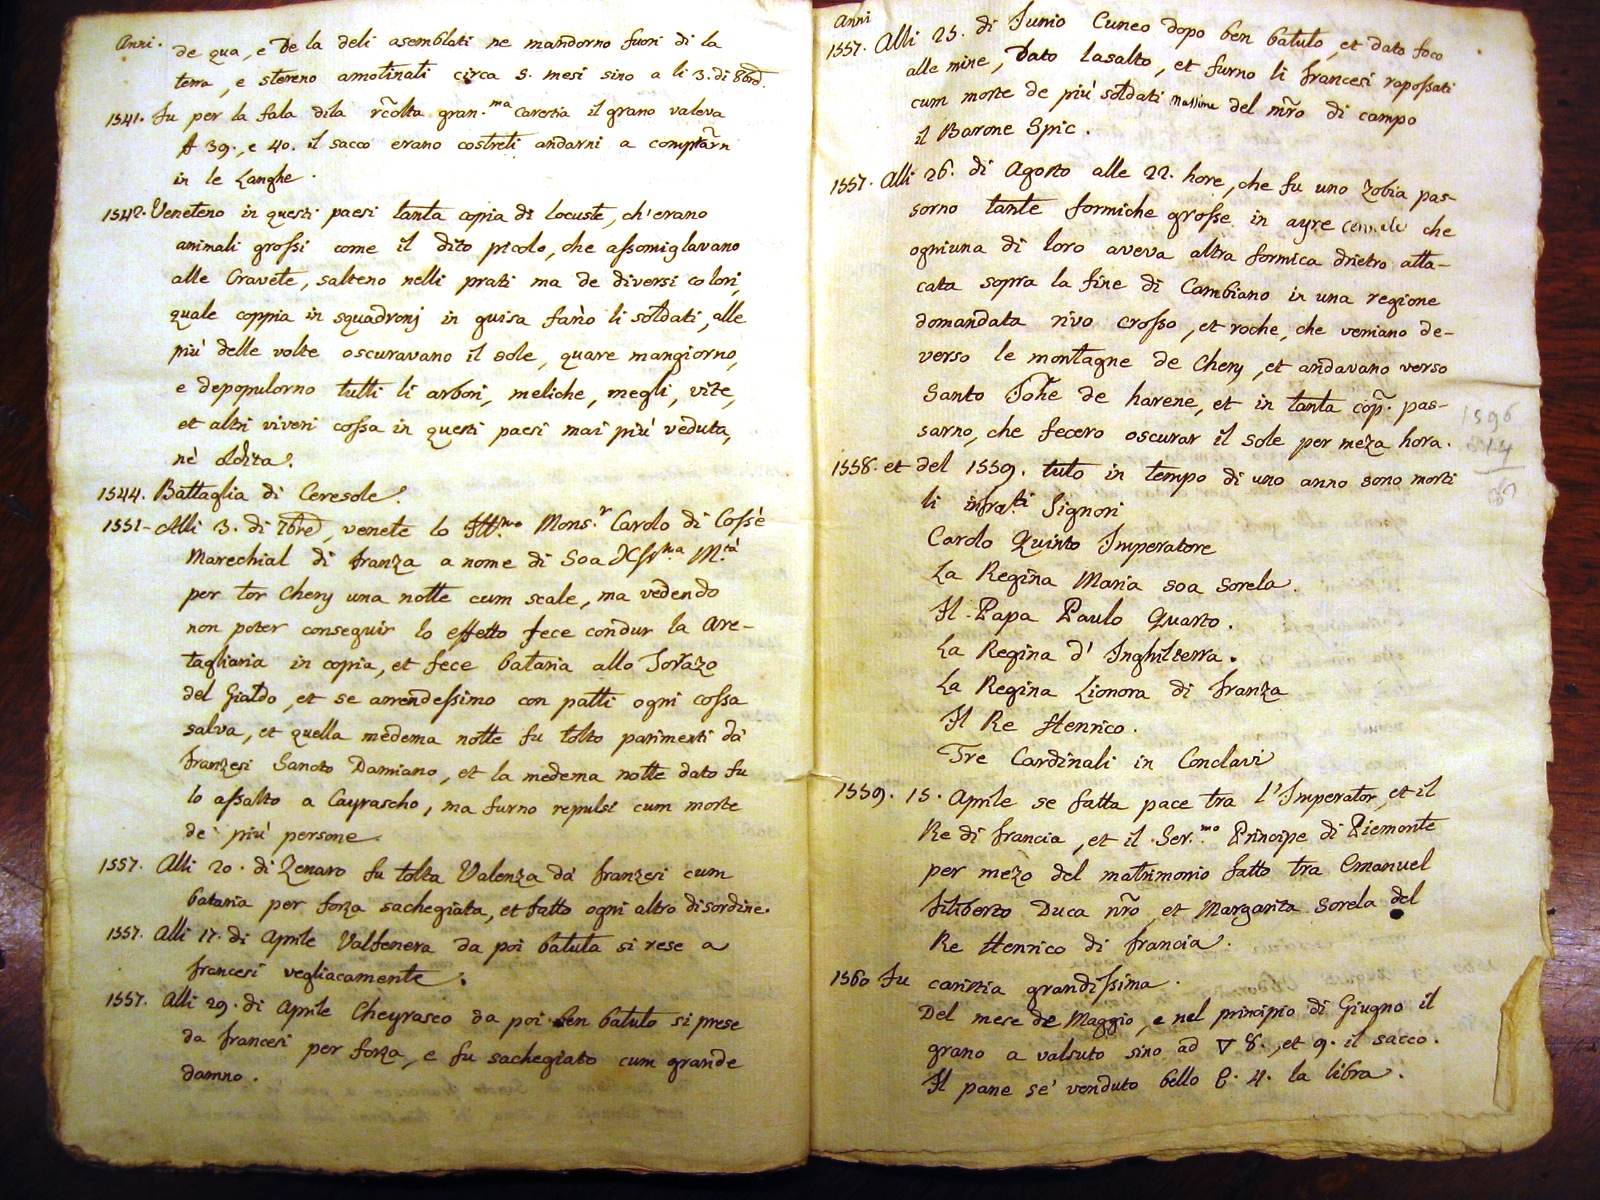 Anni.
de qua, e de la deli asemblati ne mandorno fuori di la
terra, e stereno amotinati circa 5. mesi sino a li 3. di 8bre.
1541. Fu per la fala dila rcolta gran.ma carestia il grano valeva
ff 39., e 40. il sacco erano costreti andarni a comprarn
in le Langhe.
1542. Veneteno in questi paesi tanta copia di locuste, ch'erano
animali grossi come il dito picolo, che assomiglavano
alle Cravete, salteno nelli prati ma de diversi colori,
quale coppia in squadronj in guisa fano li soldati, alle
più delle volte oscuravano il sole, quare mangiorno,
e depopulorno tutti li arbori, meliche, megli, vite,
et altri viveri cossa in questi paesi mai più veduta,
nè oldita.
1544. Battaglia di Ceresole.
1551- Alli 3. di 7bre, venete lo Ill.mo Mons.r Carolo di Cossè
Marechial di franza a nome di Soa Xss.ma M.tà
per tor Chery una notte cum scale, ma vedendo
non poter conseguir lo effetto fece condur la Are-
tagliaria in copia, et fece bataria allo Torazo
del Gialdo, et se arrendessimo con patti ogni cossa
salva, et quella medema notte fu tolto parimenti dà
franzesi Sancto Damiano, et la medema notte dato fu
lo assalto a Cayrascho, ma furno repulsi cum morte
de più persone.
1557. Alli 20. di Zenaro fu tolta Valenza dà franzesi cum
bataria per forza sachegiata, et fatto ogni altro disordine.
1557. Alli 17. di Aprile Valfenera da poi batuta si rese a
francesi vegliacamente.
1557. Alli 29. di Aprile Cheyrasco da poi ben batuto si prese
da francesi per forza, e fu sachegiato cum grande
damno.
Anni
1557. Alli 25. di Junio Cuneo dopo ben batuto, et dato foco
alle mine, Dato lasalto, et furno li francesi ropossati
cum morte de più soldati massime del mro di campo
il Barone Spic.
1557. Alli 26. di Agosto alle 22. hore, che fu uno Zobia pas-
sorno tante formiche grosse in ayre che
ogniuna di loro aveva altra formica drietro atta-
cata sopra la fine di Cambiano in una regione
domandata rivo crosso, et roche, che veniano de-
verso le montagne de Chery, et andavano verso
Santo Johe de harene, et in tanta cop. pas-
sarno, che fecero oscurar il sole per meza hora.
1558. et del 1559. tuto in tempo di uno anno sono morti
li infra.ti Signori
Carolo Quinto Imperatore
La Regina Maria soa Sorela.
Il Papa Paulo Quarto.
La Regina d' Inghilterra.
La Regina Lionora di franza
Il Re Henrico.
Tre Cardinali in Conclavi
1559. 15. Aprile se fatta pace tra l'Imperator, et il
Re di francia, et il Ser.mo Principe di Piemonte
per mezo del matrimonio fatto tra Emanuel
Filiberto Duca nro, et Margarita Sorela del
Re Henrico di francia.
1560 Fu caristia grandissima.
Del mese de Maggio, e nel principio di Giugno il
grano a valsuto sino ad ▽ 8., et 9. il sacco.
Il pane sè venduto bello 4. la libra.
1596